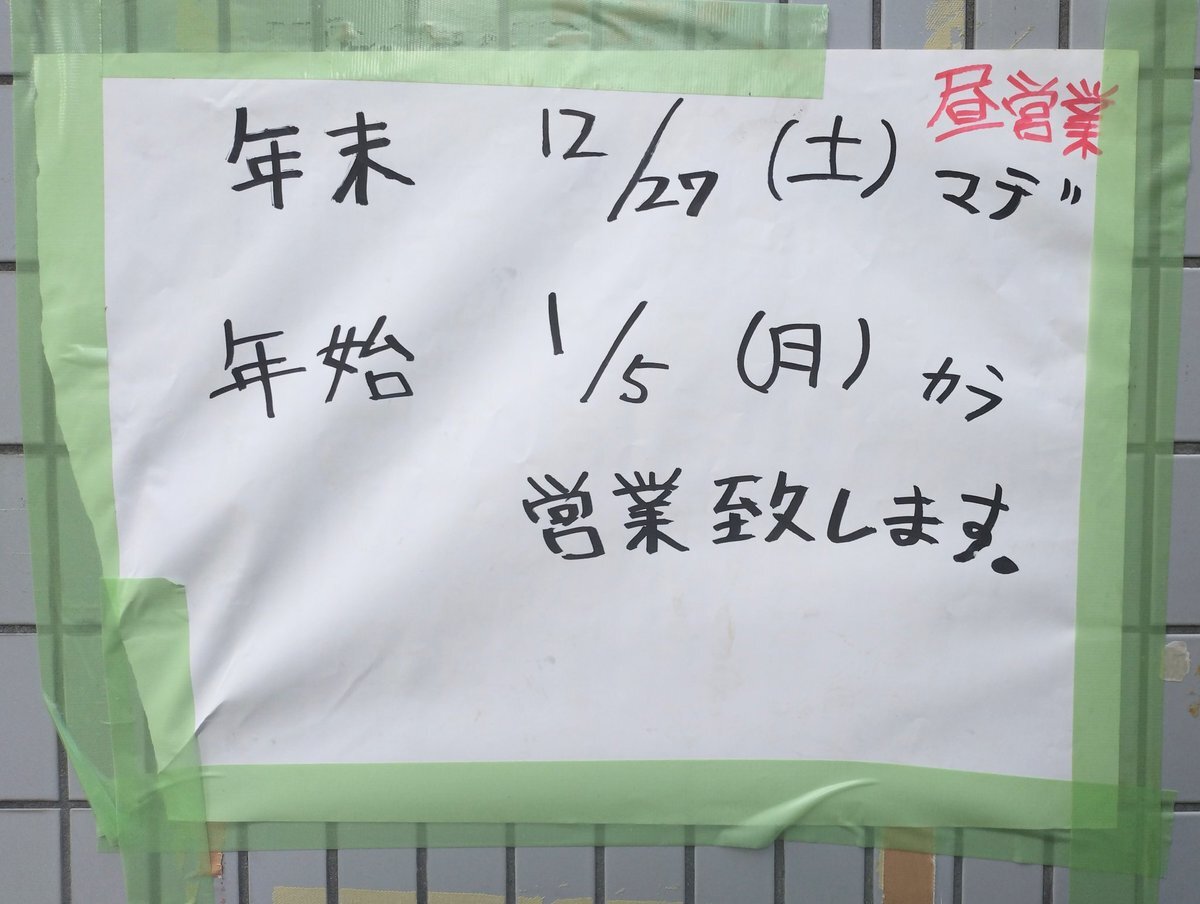 昼営業
年末 12/27 (土) マデ
年始 1/5 (月) から
営業致します.